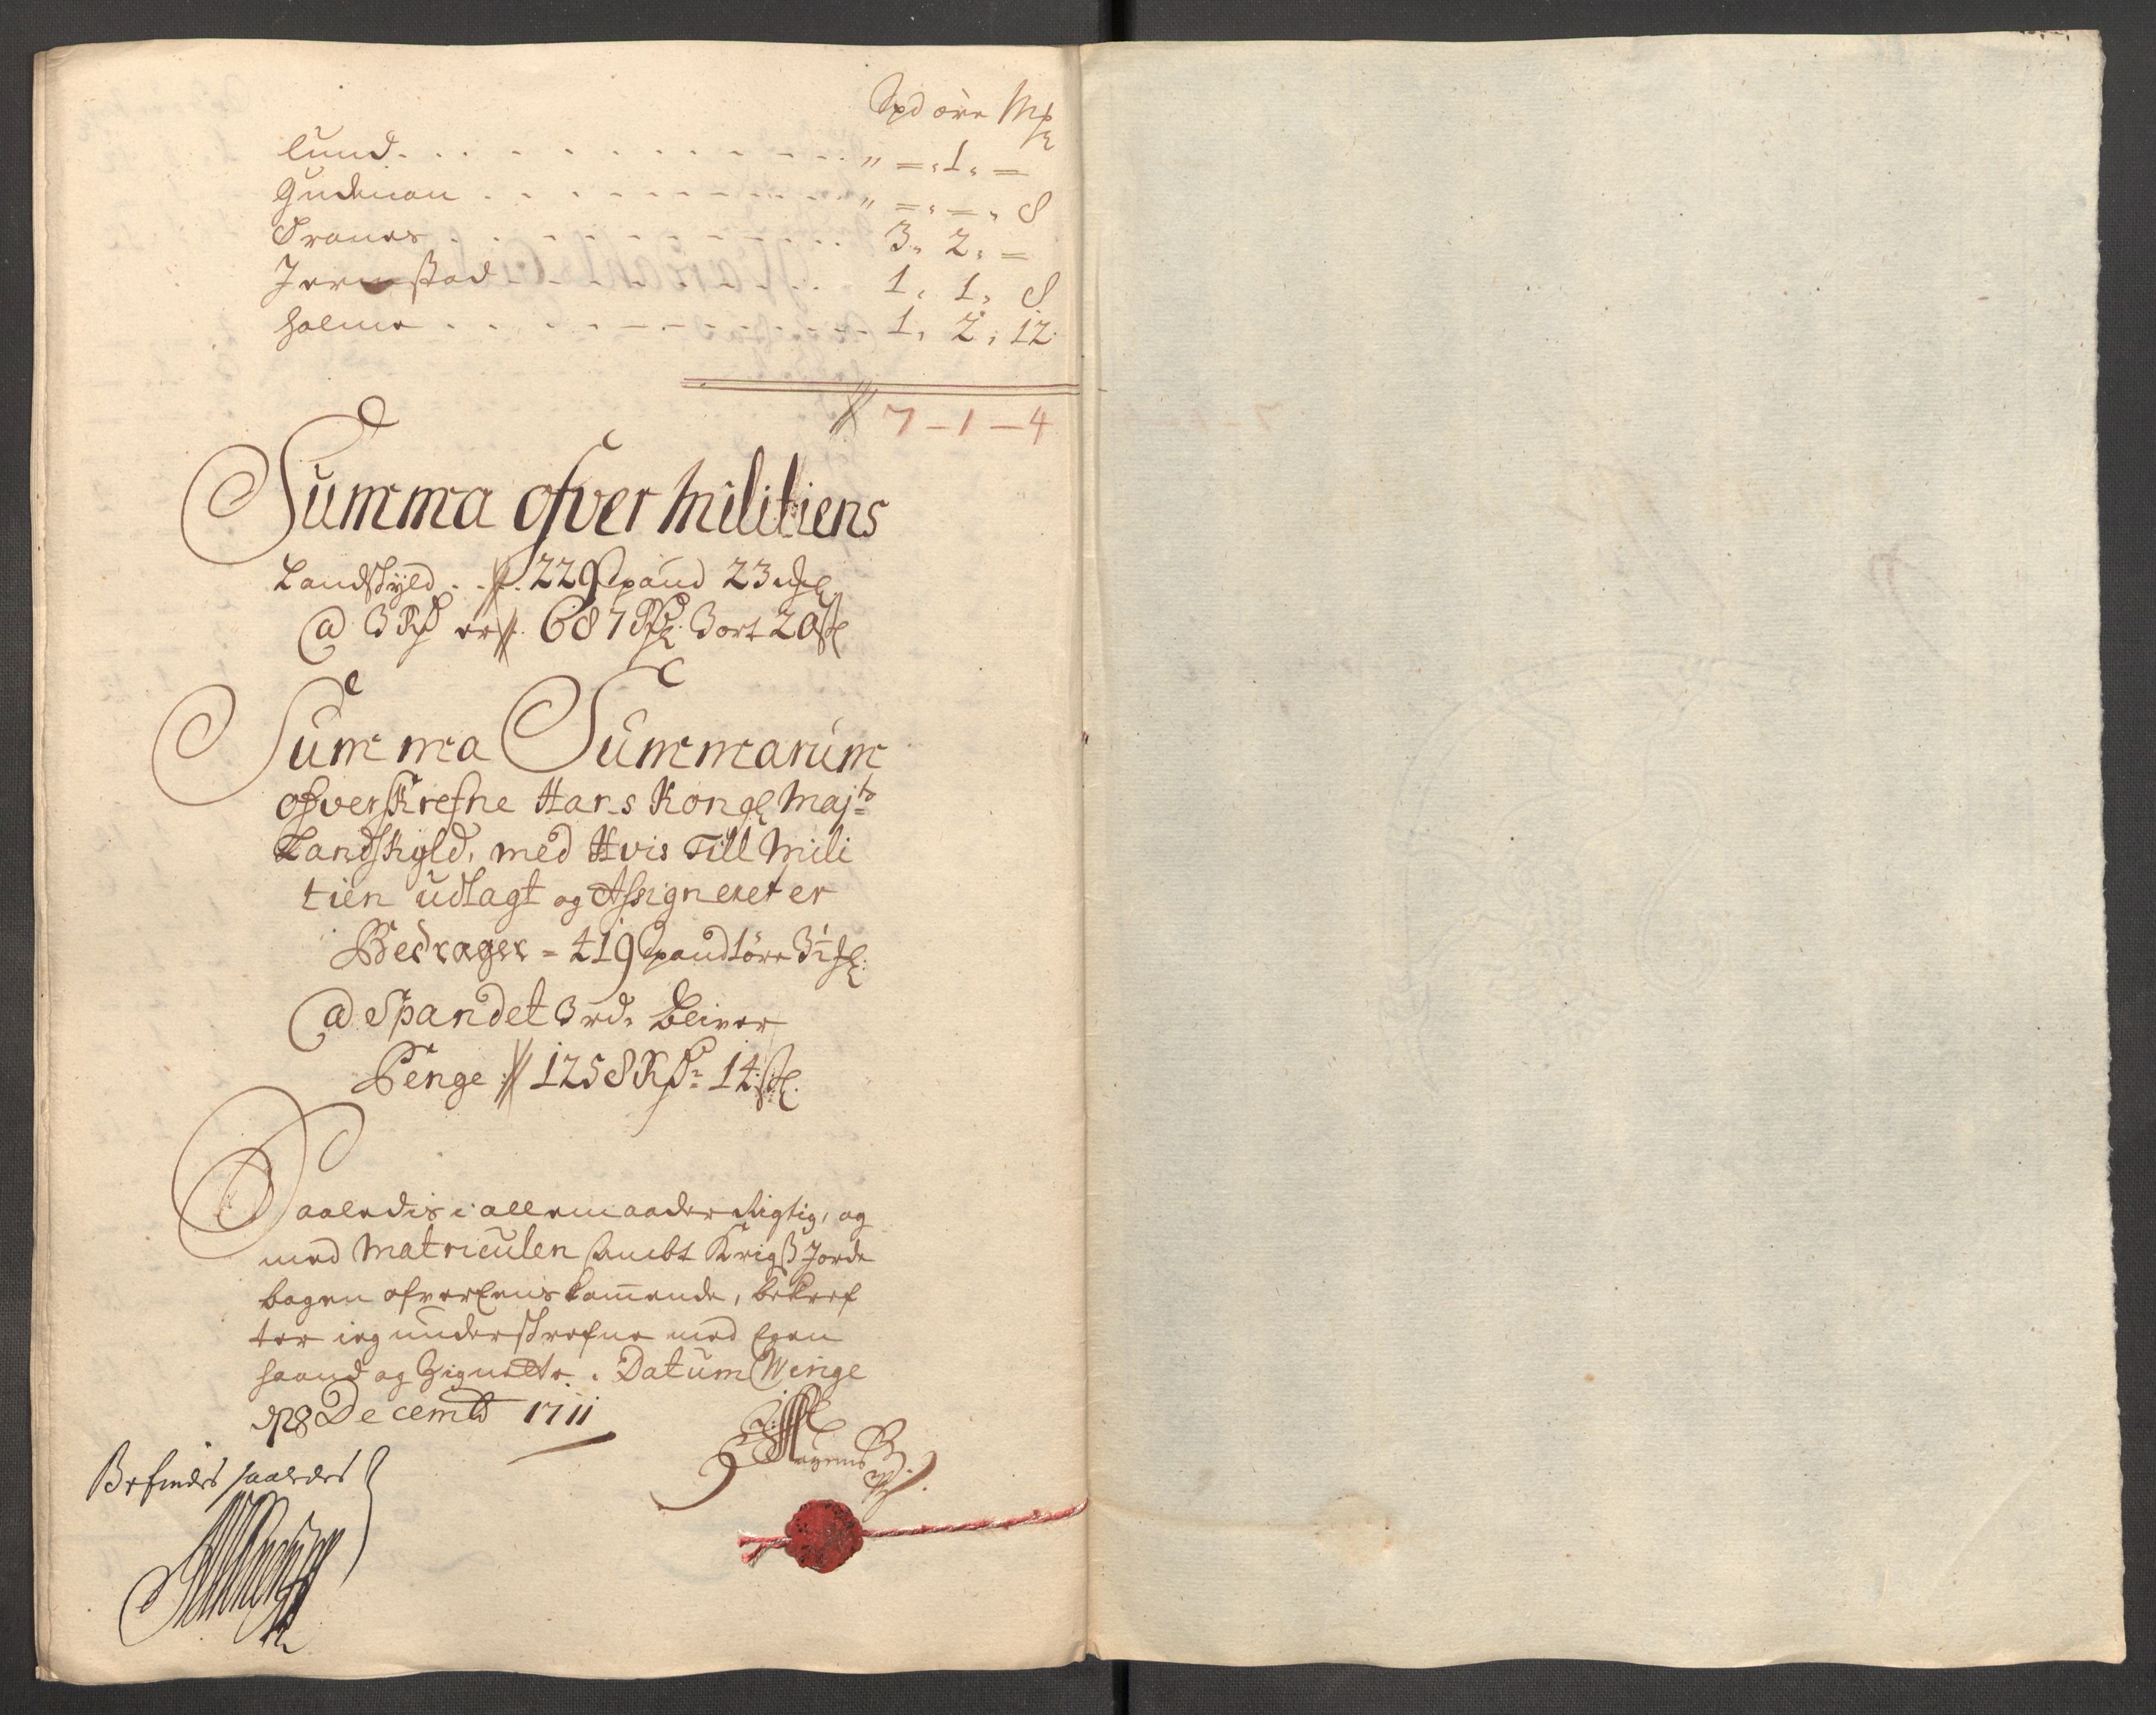 Spd øre Mk
Lund . . . . . . . . . . . . . . „ = „ 1 „ =
Gudmon . . . . . . . . . . . . „ = „ = „ 8
Oranes . . . . . . . . . . . . . 3 „ 2 „ =
Jermstad . . . . . . . . . . . . 1 „ 1 „ 8
Holme . . . . . . . . . . . . . 1 „ 2 „ 12
7 – 1 – 4
Summa ofver Militiens
Landskyld . . 229 Spand 23
@ 3 Rd er 687 Rd 3 ort 20
Summa Summarum
ofverskrefne Hans Kongl Majts
Landskyld, med Hvis Till Mili
tien udlagt og Assigneret er
Bedrager = 419 Spand 1 øre 3½
@ Spandet 3 rd. bliver
Penge 1258 Rd 14
Saaledis i alle maader Rigtig, og
med Matriculen sambt Krigs Jorde
bogen ofver Eens kommende, bekref
ter ieg underskrefne med Egen
haand og Zignette. Datum Winge
d 28 Decembr 1711
Befindes saaledes